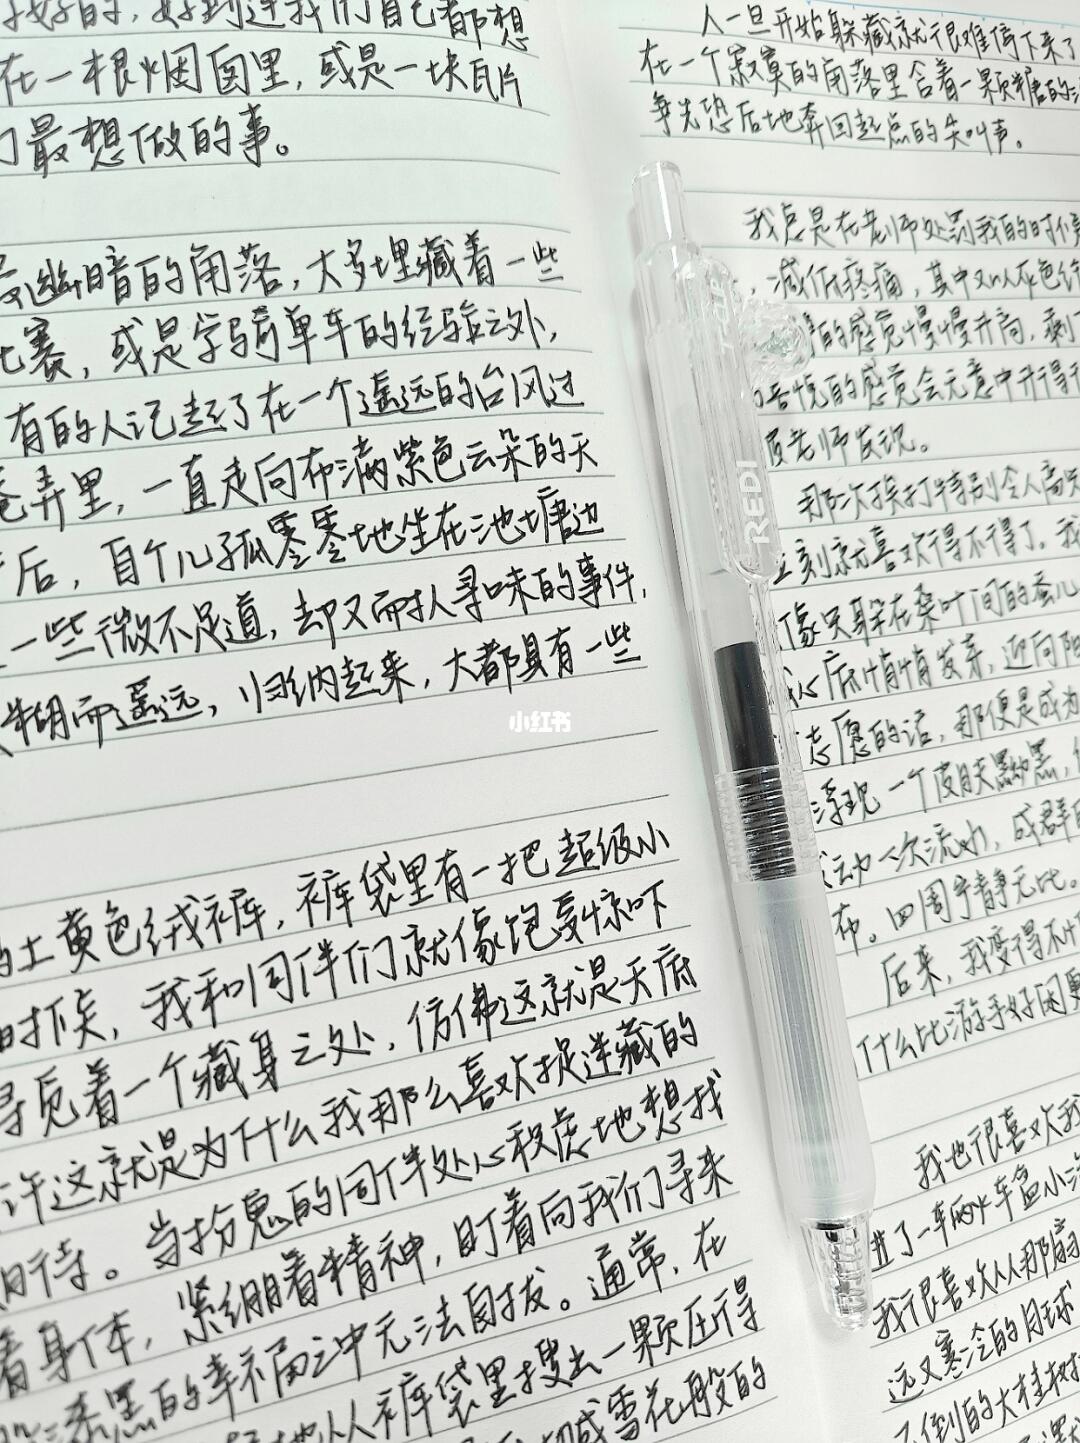 好的，好到连我们自己都想
在一根烟囱里，或是一块瓦片
们最想做的事。
幽暗的角落，大多埋藏着一些
比赛，或是学骑单车的经验之外，
有的人记起了在一个遥远的台风过
巷弄里，一直走向布满紫色云朵的天
后，自个儿孤零零地坐在池塘边
一些微不足道，却又耐人寻味的事件，
糊而遥远，归纳起来，大都具有一些
土黄色绒裤，裤袋里有一把超级小
时候，我和同伴们就像饱受惊吓
寻觅着一个藏身之处，仿佛这就是天底
许这就是为什么我那么喜欢捉迷藏的
期待。当扮鬼的同伴处心积虑地想找
着身体，紧绷着精神，盯着向我们寻来
漆黑的幸福之中无法自拔。通常，在
地从裤袋里搜出一颗压得
碱雪花般的
人一旦开始躲藏就很难停下来了
在一个寂寞的角落里含着一颗糖的
争先恐后地奔回起点的尖叫声。
我总是在老师处罚我的时候
，减低疼痛，其中又以灰色
的感觉慢慢升高，剩下
悦的感觉会无意中升得
被老师发现。
那次挨打特别令人高兴
立刻就喜欢得不得了。我
像只躲在桑叶间的蚕儿
心底悄悄发芽，迎向阳
志愿的话，那便是成为
浮现一个皮肤黝黑，
动一次流水，成群的
布。四周宁静无比。
后来，我变得不
什么比游手好闲更
我也很喜欢我
进了一车两火车盒小汽
我很喜欢从那扇
远又寒冷的月球
不倒的大桂树
REDI
小红书